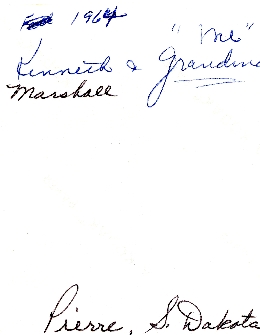 1964
"Me"
Kenneth & Grandma
Marshall
Pierre, S. Dakota